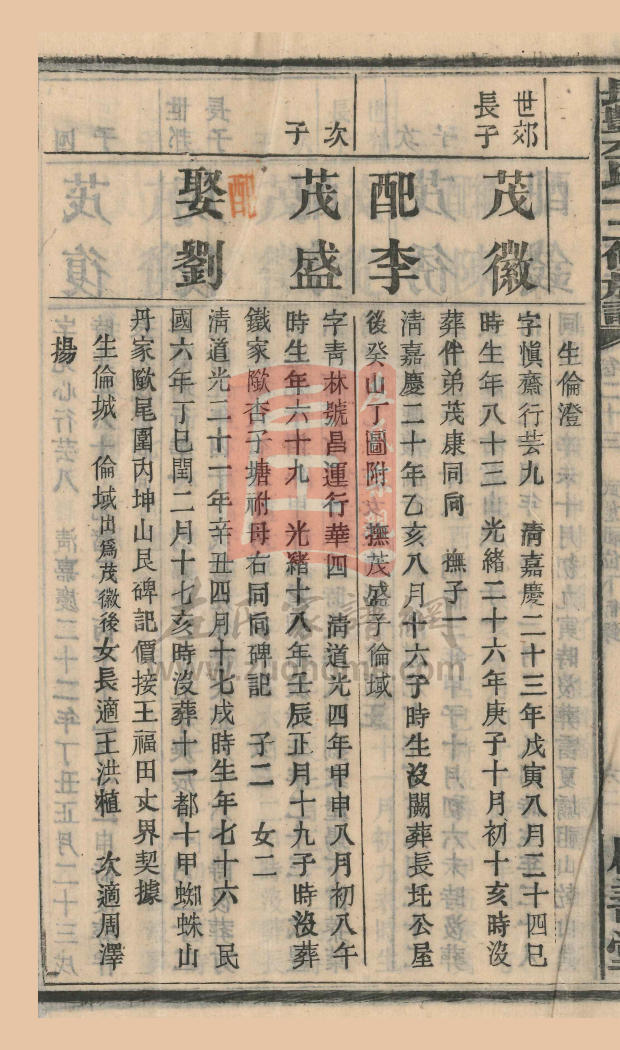 生倫澄
世郊
長子
茂徽
字慎齋行芸九 清嘉慶二十三年戊寅八月二十四巳
時生年八十三 光緒二十六年庚子十月初十亥時沒
葬伴弟茂康同向 撫子一
配李
清嘉慶二十年乙亥八月十六子時生沒闕葬長圫公屋
後癸山丁圖附 撫茂盛子倫域
次
子
茂盛
字青林號昌運行華四 清道光四年甲申八月初八午
時生年六十九 光緒十八年壬辰正月十九子時沒葬
鐵家歐杏子塘祔母右同向碑記 子二 女二
配
娶劉
清道光二十一年辛丑四月十七戌時生年七十六 民
國六年丁巳閏二月十七亥時沒葬十一都十甲蜘蛛山
丹家歐尾圍內坤山艮碑記價接王福田丈界契據
生倫城 倫域出爲茂徽後女長適王洪植 次適周澤
揚
www.zuohomu.com